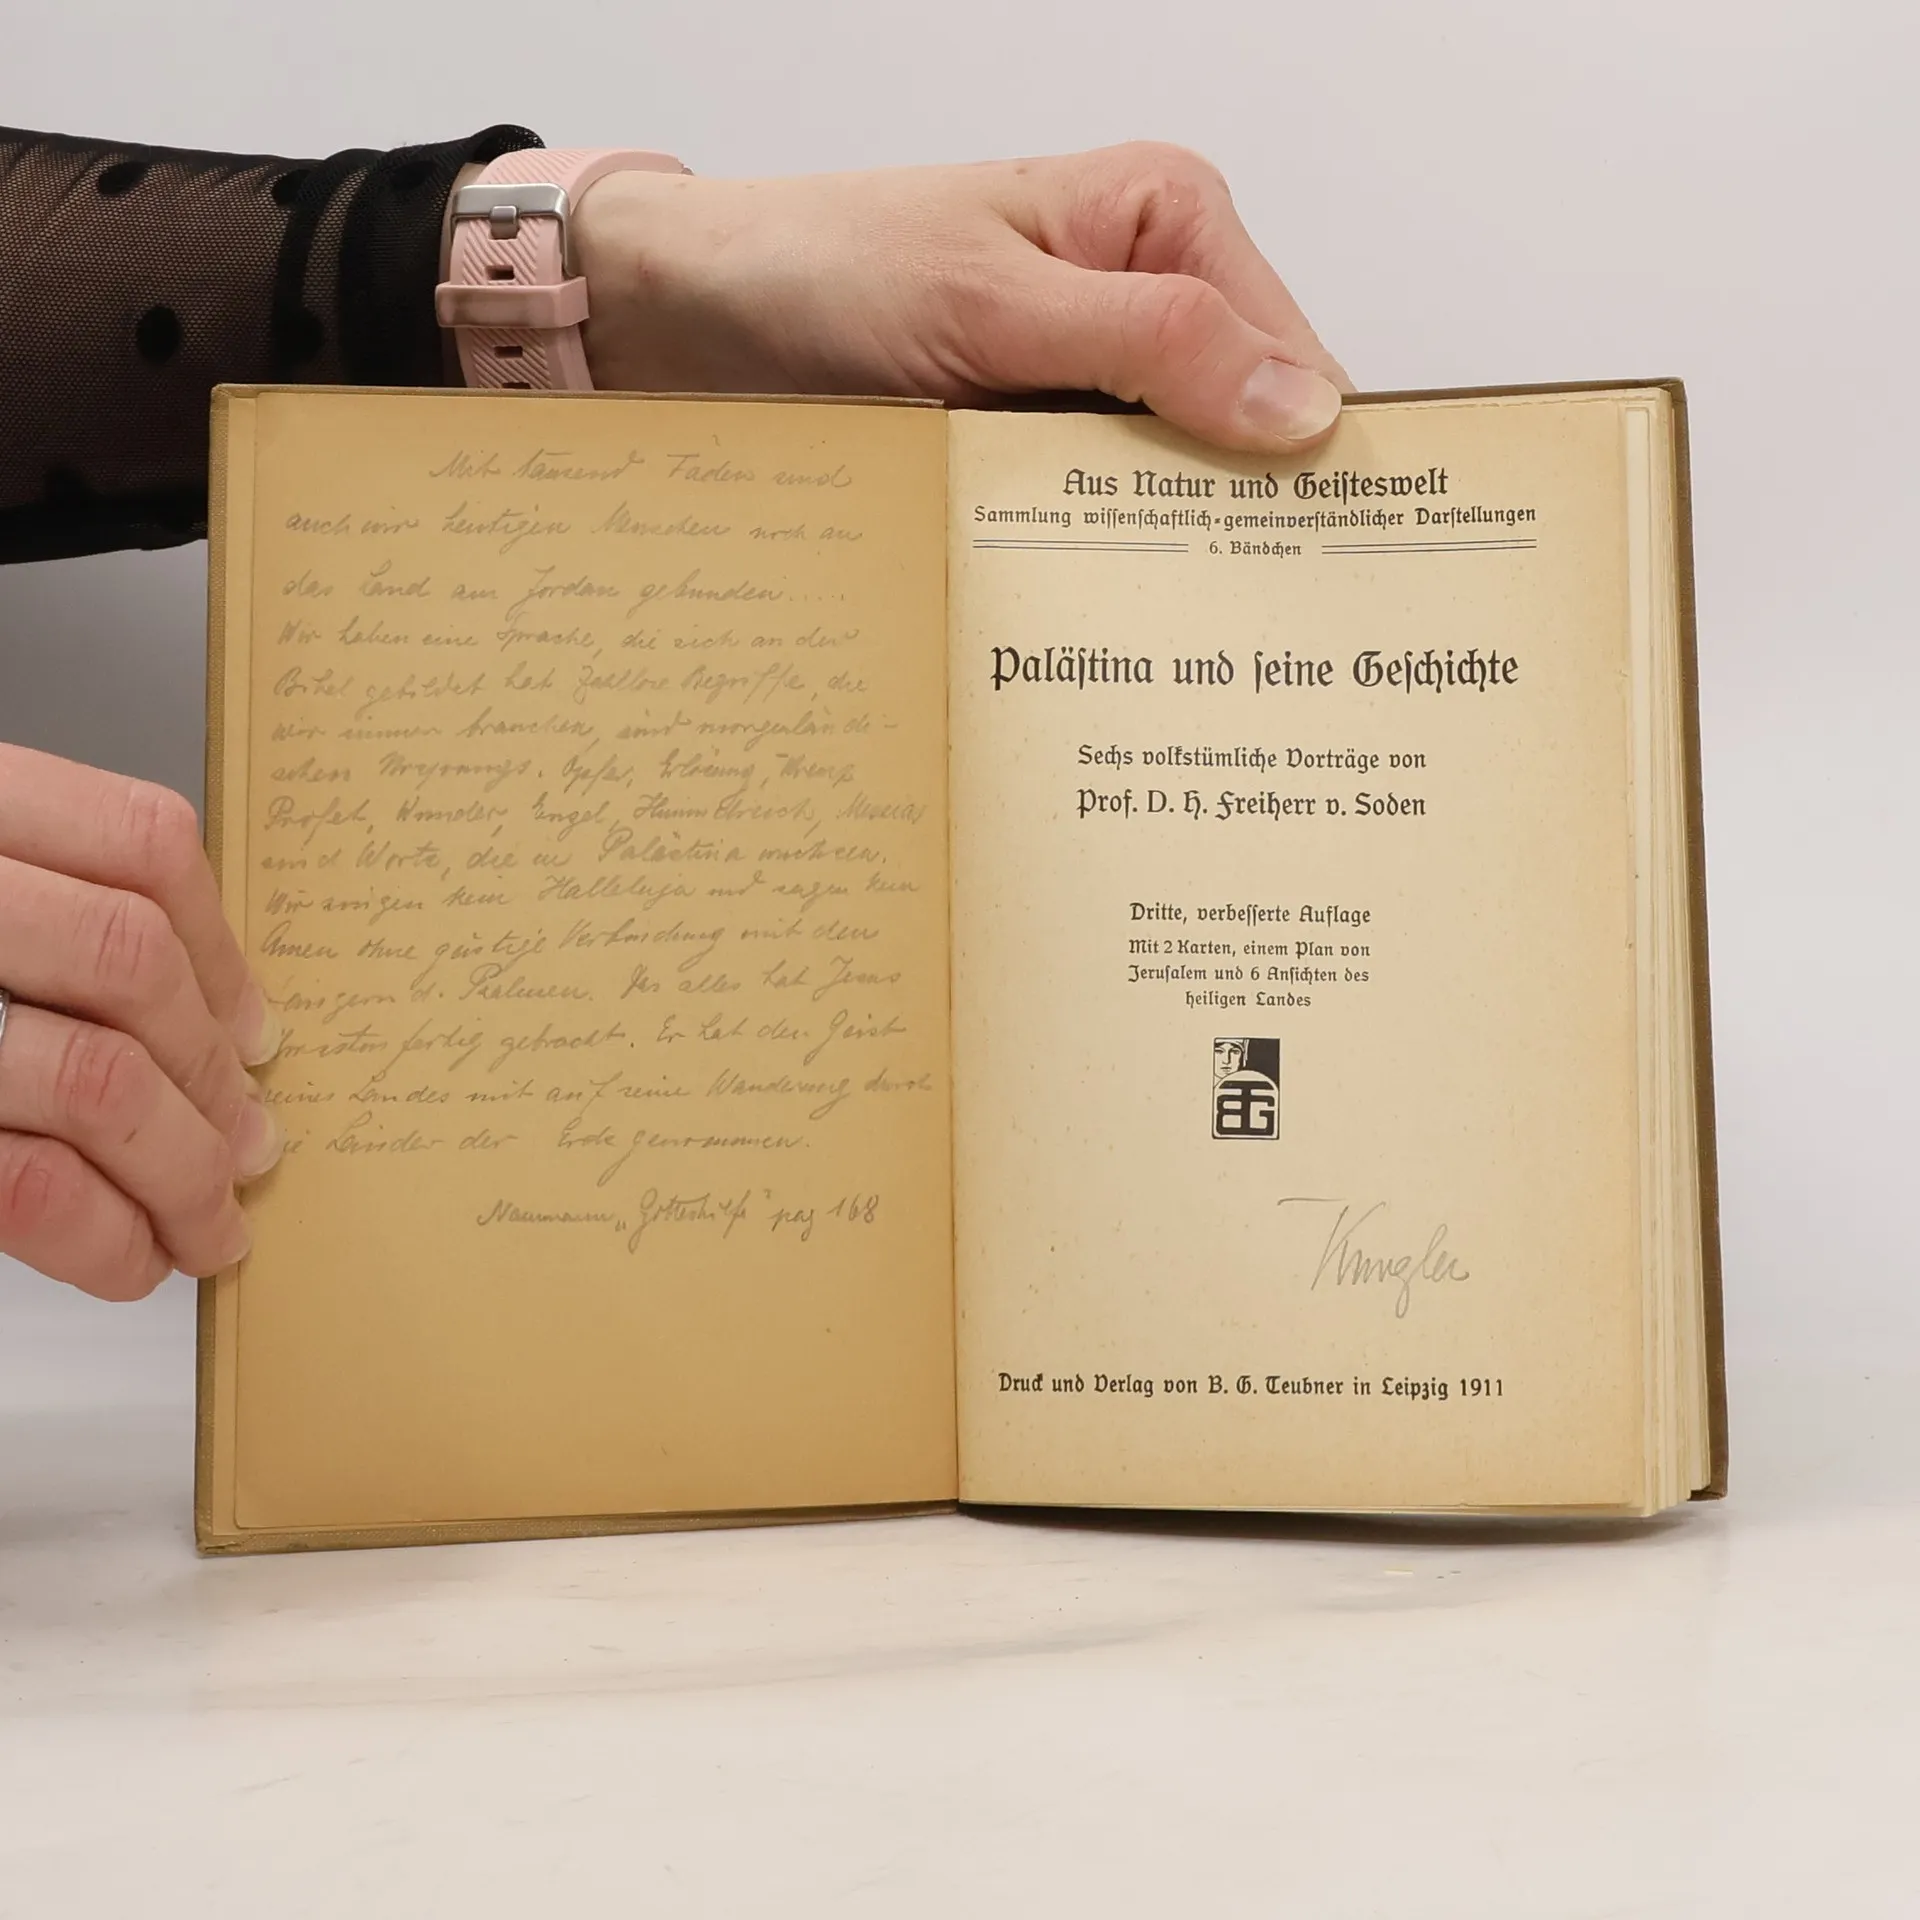 Mit tausend Fäden sind
auch wir heutigen Menschen noch an
das Land am Jordan gebunden.....
Wir haben eine Sprache, die sich an der
Bibel gebildet hat. Zahllose Begriffe, die
wir immer brauchen, sind morgenländi-
schen Ursprungs. Opfer, Erlösung, Kreuz
Profet, Wunder, Engel, Himmelreich, Messias
sind Worte, die in Palästina wuchsen.
Wir singen kein Halleluja und sagen kein
Amen ohne geistige Verbindung mit den
Sängern d. Psalmen. Das alles hat Jesus
Christus fertig gebracht. Er hat den Geist
seines Landes mit auf seine Wanderung durch
die Länder der Erde genommen.
Naumann „Gotteshilfe" pag 168
Aus Natur und Geiſteswelt
Sammlung wiſſenſchaftlich-gemeinverſtändlicher Darſtellungen
6. Bändchen
Paläſtina und ſeine Geſchichte
Sechs volkstümliche Vorträge von
Prof. D. H. Freiherr v. Soden
Dritte, verbeſſerte Auflage
Mit 2 Karten, einem Plan von
Jeruſalem und 6 Anſichten des
heiligen Landes
BTG
Druck und Verlag von B. G. Teubner in Leipzig 1911